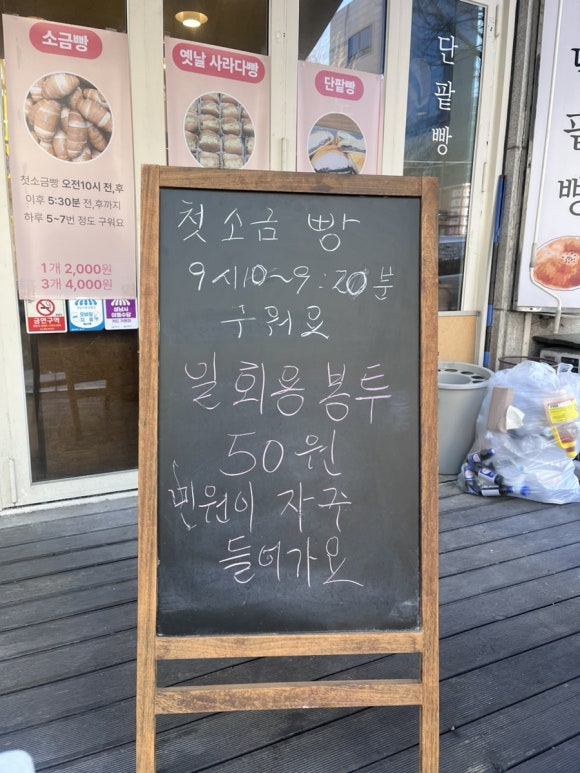 소금빵
첫소금빵 오전10시 전,후
이후 5:30분 전,후까지
하루 5~7번 정도 구워요
1개 2,000원
3개 4,000원
금연구역
옛날 사라다빵
단팥빵
단팥빵
첫 소금 빵
9시10~9:20분
구워요
일회용봉투
50원
민원이 자주
들어가요